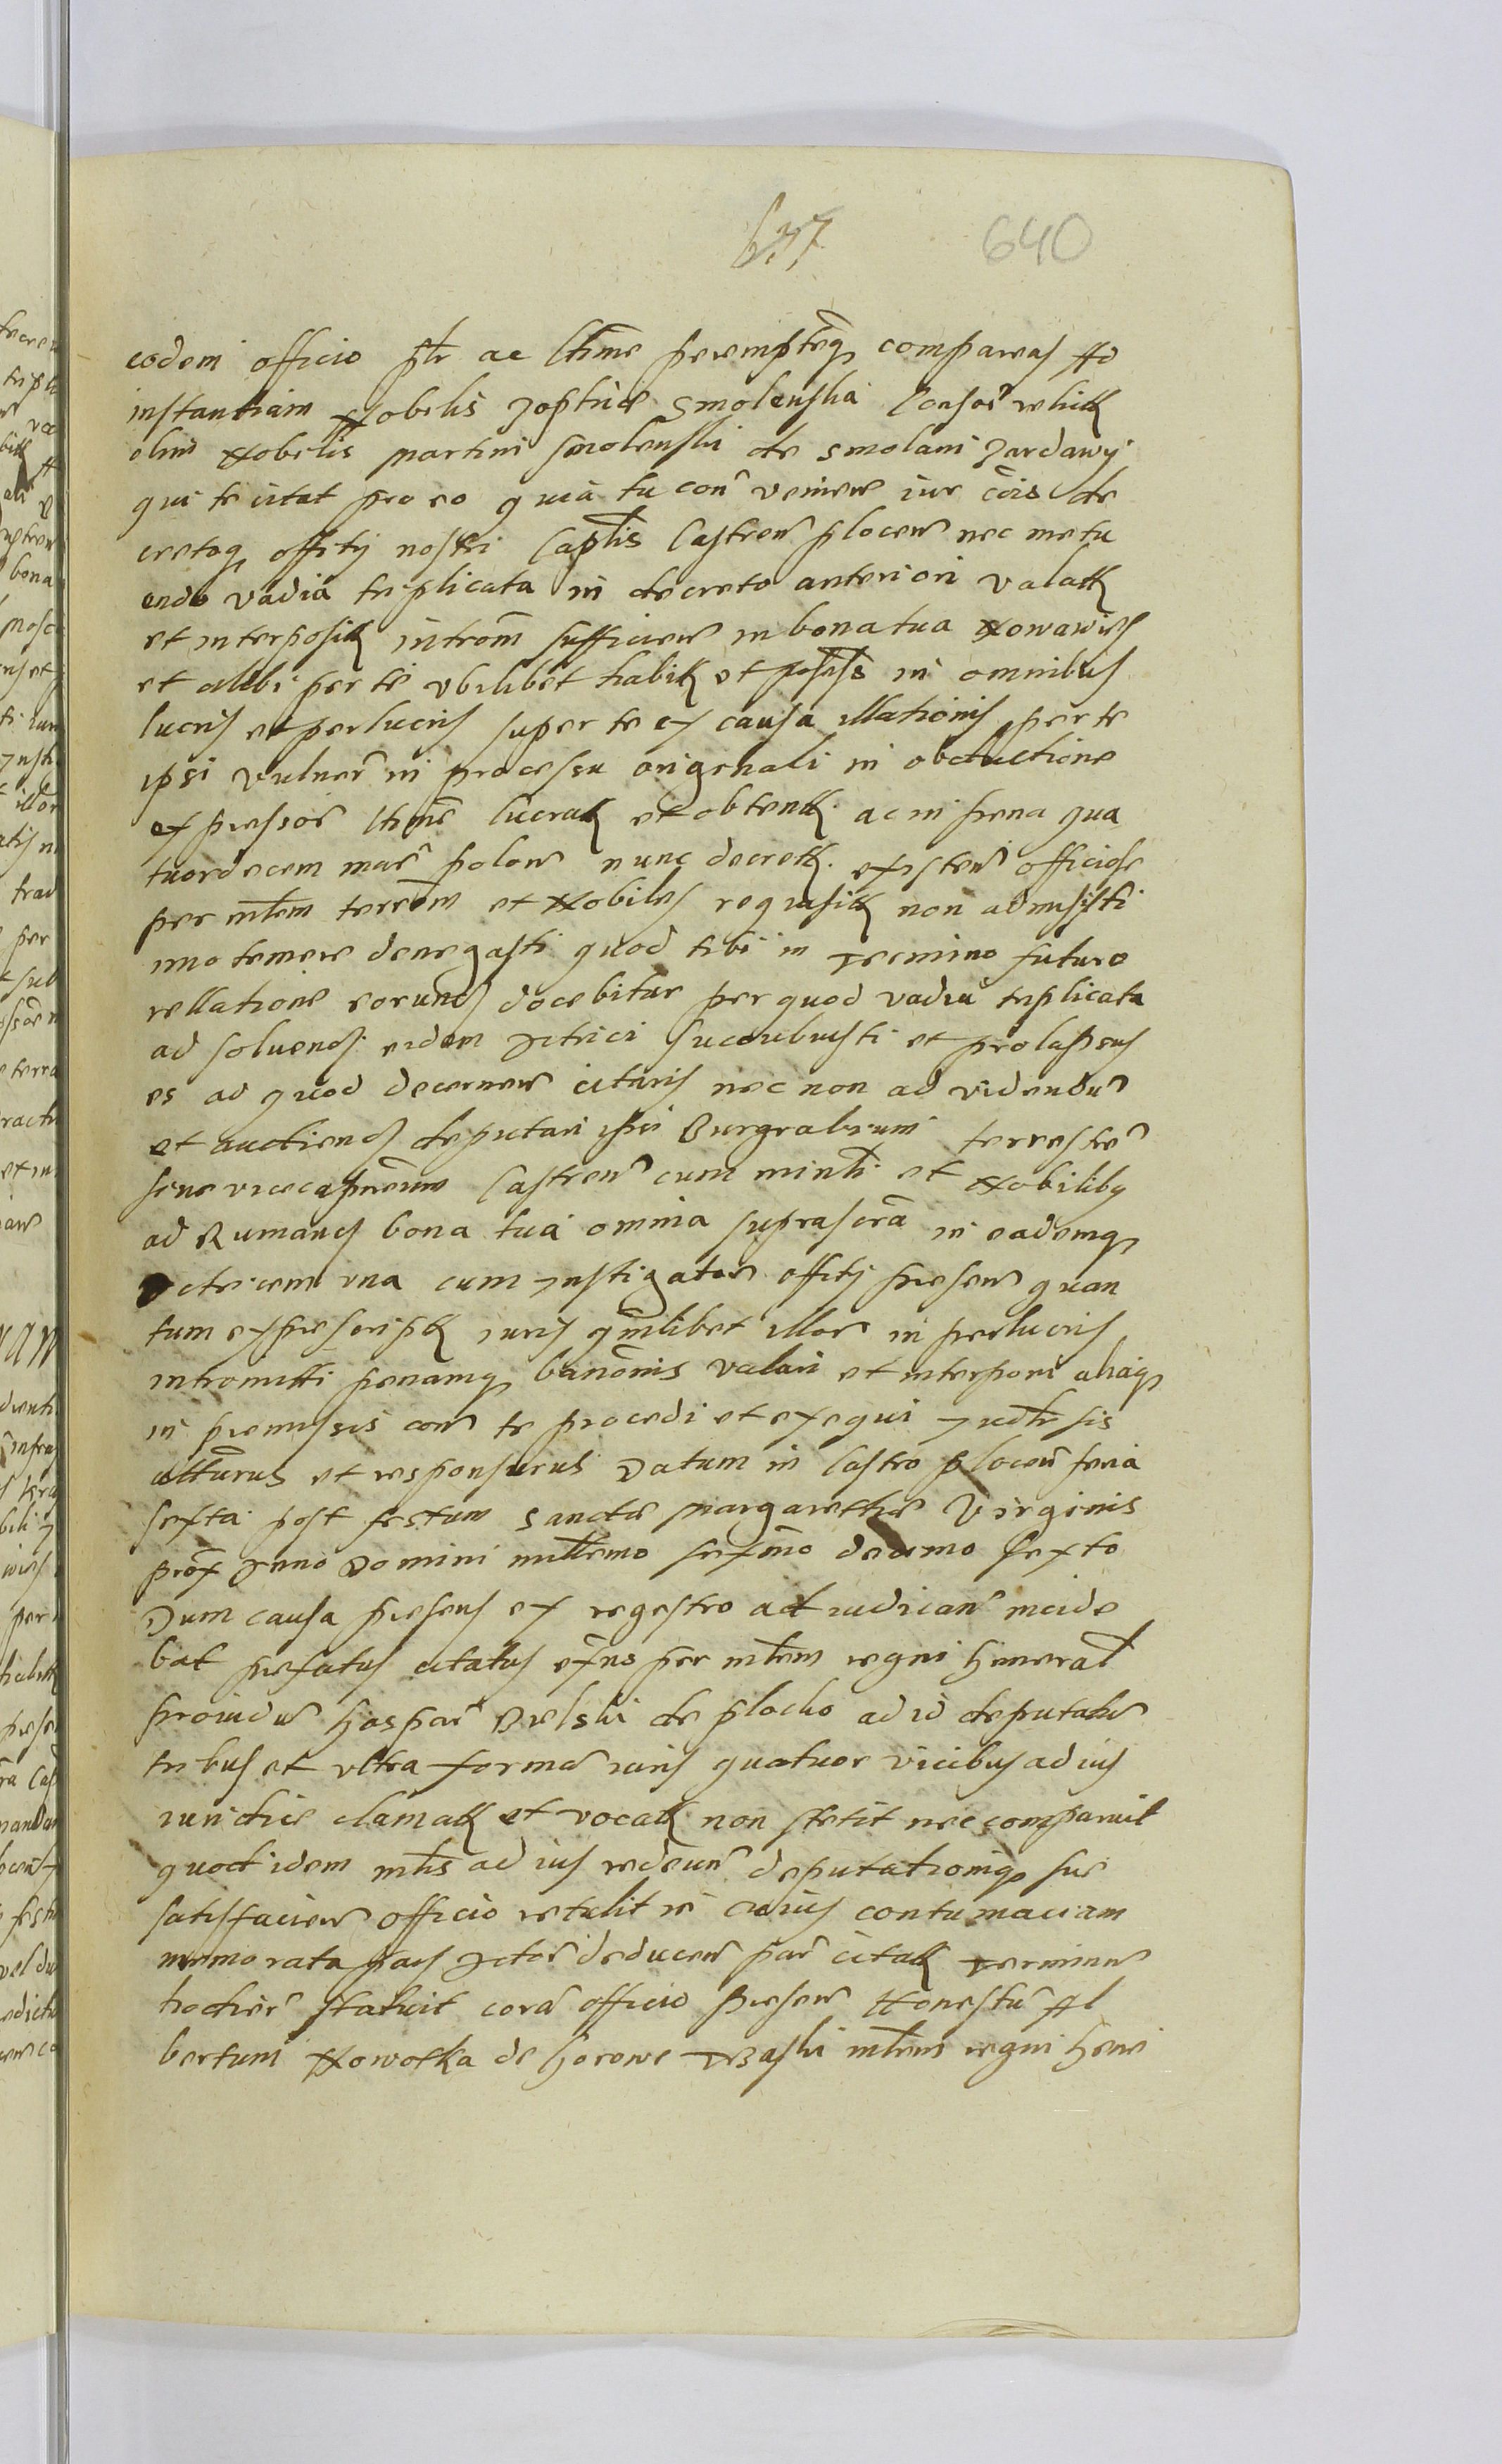 637 640
eodem officio plr ac ltime perempteq compareas Ad
instantiam Nobilis Zophiae Smolenska Consor relictae
olim Nobilis Martini Smolenski de Smolani Zardawy
qui te citat pro eo quia tu con venien iur cois de
cretoq offitij nostri Caplis Castren plocen nec metu
endo vadia triplicata in decreto anteriori valatt
et interposit introm sufficien in bona tua Nowawies
et alibi per te ubilibet habit et possess in omnibus
lucris et perlucris super te ex causa illationis per te
ipsi vulner in processu originali in obductione
expressor ltime lucrat et obtent ac in pena qua
tuordecem mar polon nunc decret existen officiose
per mlem terrem et Nobiles requisit non admisisti
imo temere denegasti quod tibi in Termino futuro
rellatione eorund docebitur per quod vadia triplicata
ad soluend eidem Actrici succubuisti et prolapsus
es ad quod decernen citaris nec non ad videndum
et audiend deputari ipsi Burgrabium terrestre
siue vicecapneum Castren cum minli et Nobilibq
ad Rumand bona tua omnia suprascra in eademq
Actricem una cum Instigatore offitij presen quan
tum ex prescript iuris qmlibet illor in perlucris
intromitti penamq banonis valari et interponi aliaq
in premissis con te procedi et exequi Iudlr sis
attturus et responsurus Datum in Castro plocen feria
sexta post festum Sanctae Margarethae Virginis
prox Anno Domini millemo sexmo decimo sexto
Dum causa presens ex regestro ad iudican incide
bat prefatus citatus exns per mlem regni Gineral
prouidu Gaspar Bielski de plocko ad id deputatu
tribus et ultra forma iuris quatuor vicibus ad ius
iuridice clamat et vocat non stetit nec comparuit
quod idem mlis ad ius redeun deputationiq sue
satisfacien officio retulit in cuius contumaciam
memorata pars Actor deducen par citat Terminu
hodier statuit cora officio presen Honestu Al
bertum Nowotka de Gorowe Trzaski mlem regni Gene